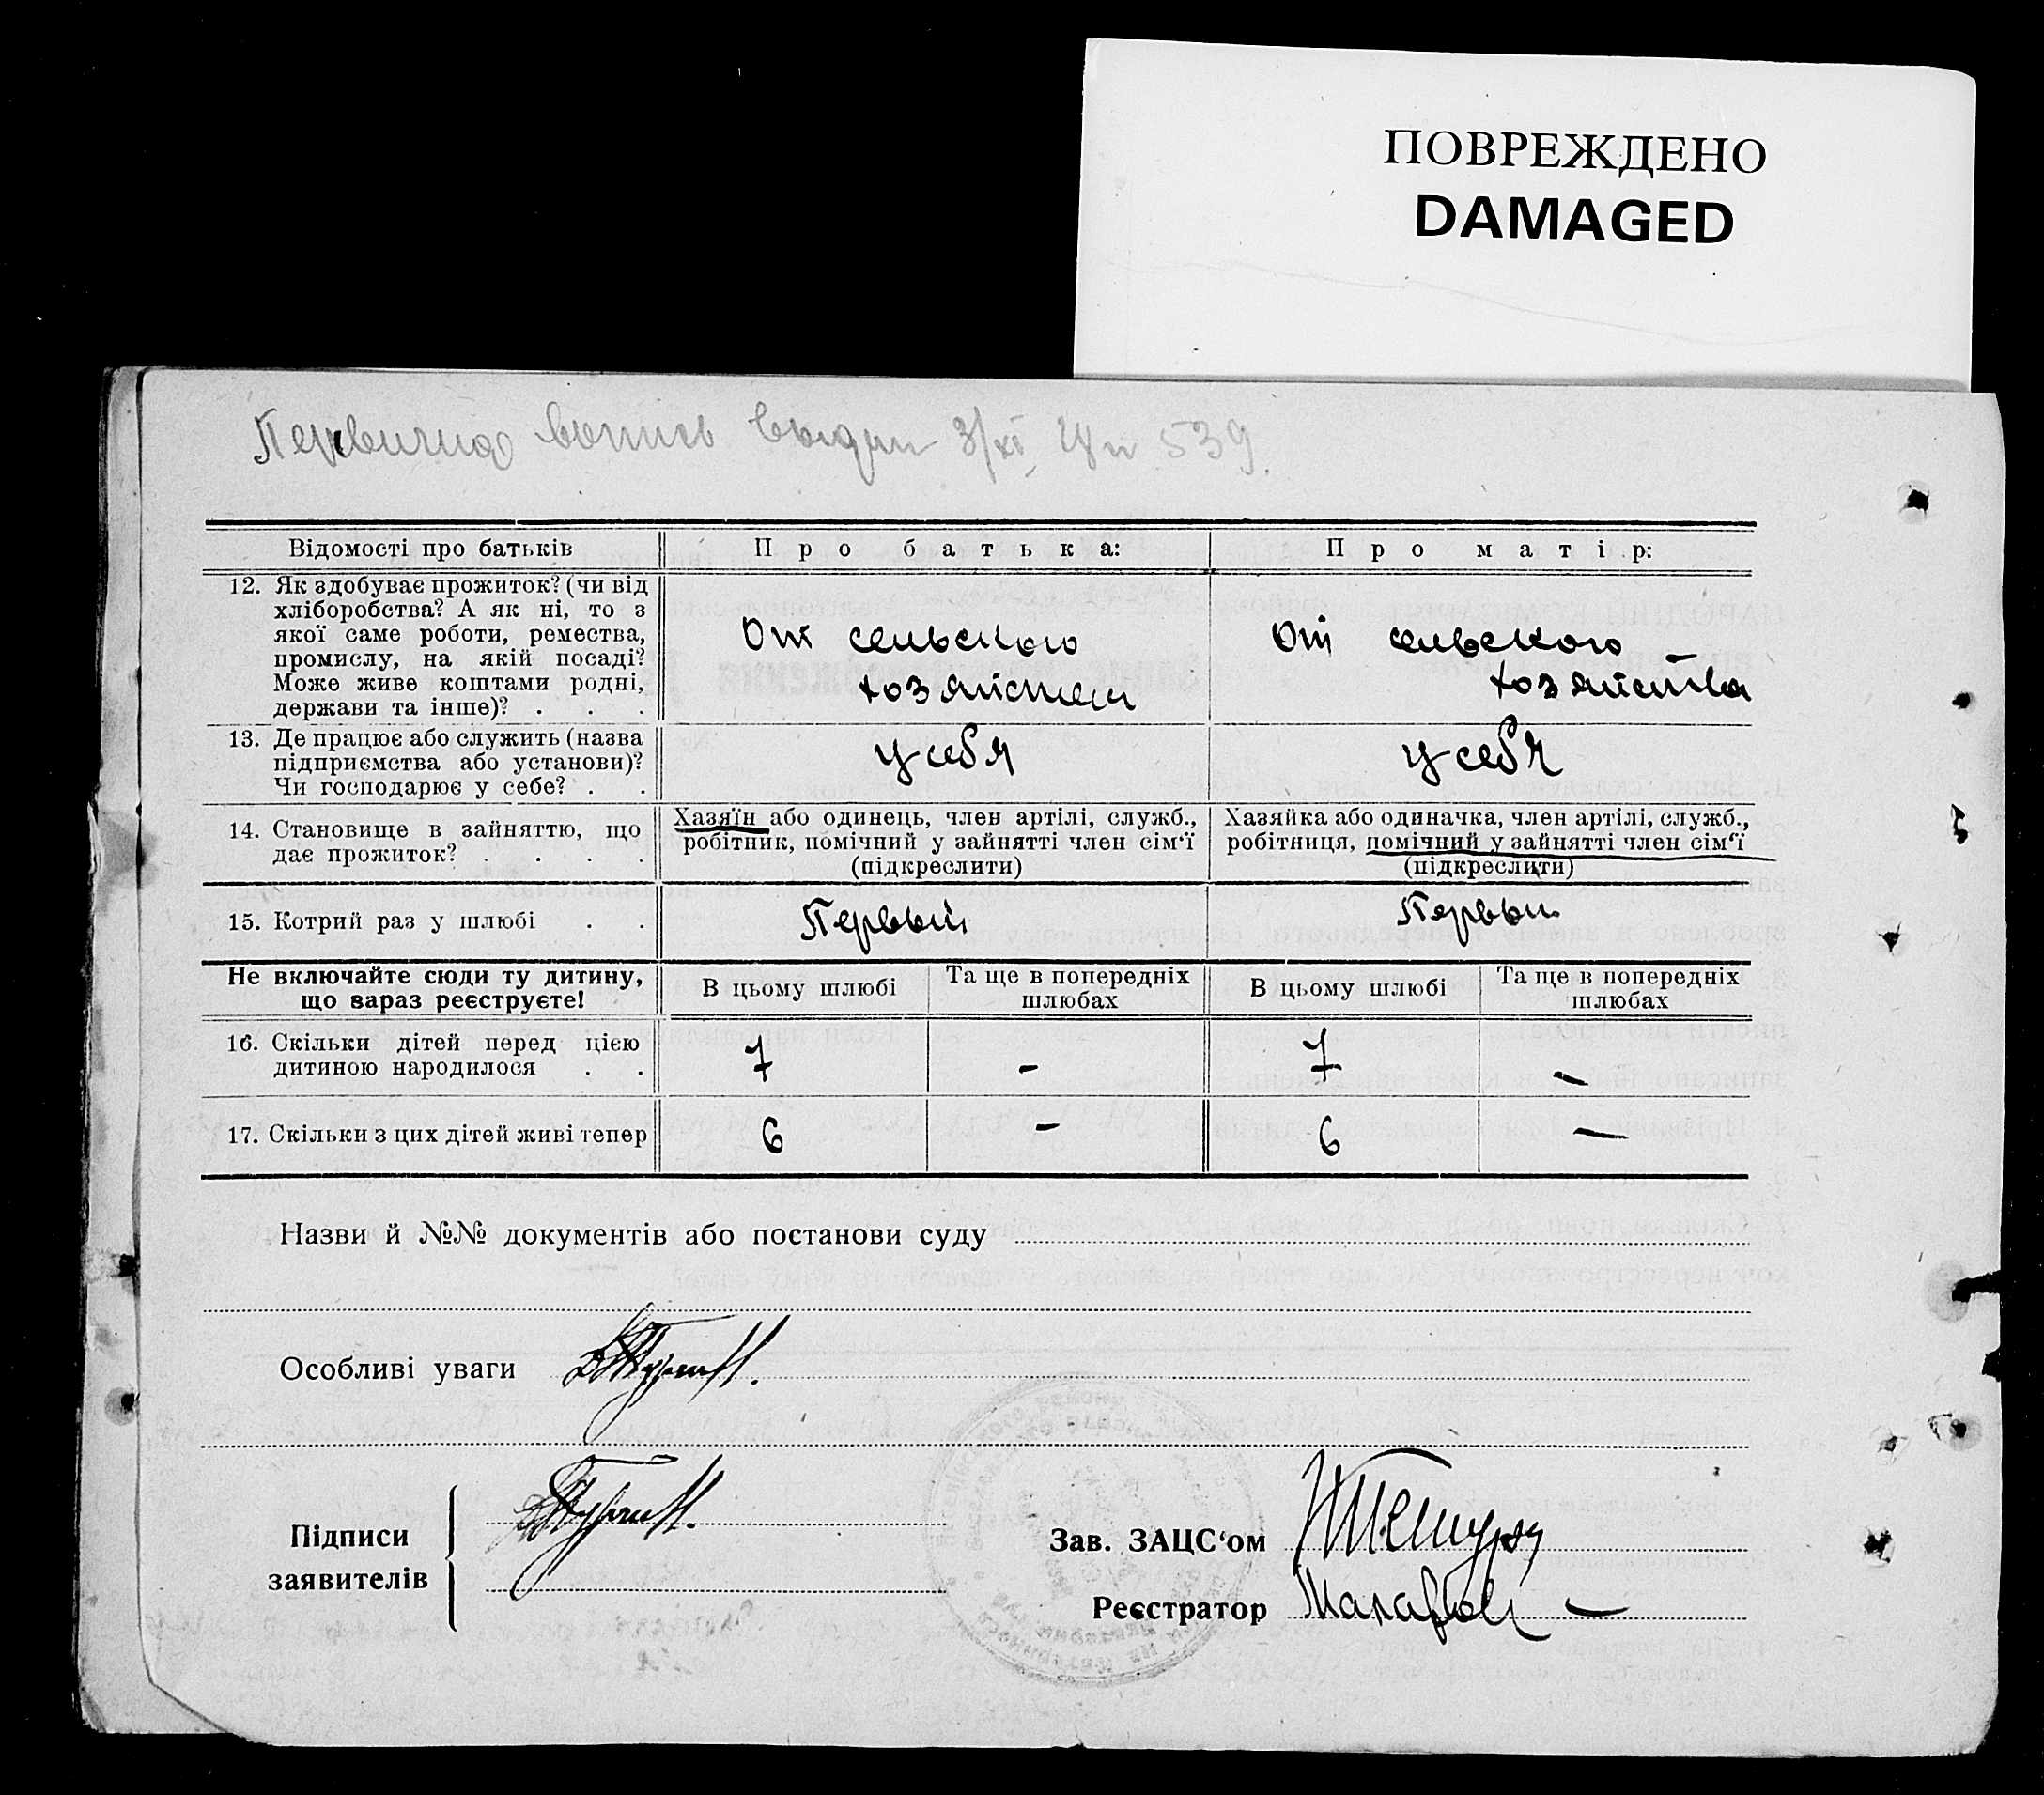 ПОВРЕЖДЕНО
DAMAGED
Первична выпись выдан 3/XI 539.
Відомості про батьків
Про батька:
Про матір:
12. Як здобуває прожиток? (чи від
хліборобства? А як ні, то з
якої саме роботи, ремества,
промислу, на якій посаді?
Може живе коштами родні,
держави та інше)? . . .
От сельского
хозяйства
От сельского
хозяйства
13. Де працює або служить (назва
підприємства або установи)?
Чи господарює у себе? . .
у себя
у себя
14. Становище в зайняттю, що
дає прожиток? . . . .
Хазяїн або одинець, член артілі, служб.,
робітник, помічний у зайнятті член сім‘ї
(підкреслити)
Хазяйка або одиначка, член артілі, служб.,
робітниця, помічний у зайнятті член сім‘ї
(підкреслити)
15. Котрий раз у шлюбі . .
Первый
Первый
Не включайте сюди ту дитину,
що вараз реєструєте!
В цьому шлюбі
Та ще в попередніх
шлюбах
В цьому шлюбі
Та ще в попередніх
шлюбах
16. Скільки дітей перед цією
дитиною народилося . .
7
-
7
-
17. Скільки з цих дітей живі тепер
6
-
6
-
Назви й №№ документів або постанови суду
Особливі уваги
Підписи
заявителів
Зав. ЗАЦС‘ом
Реєстратор